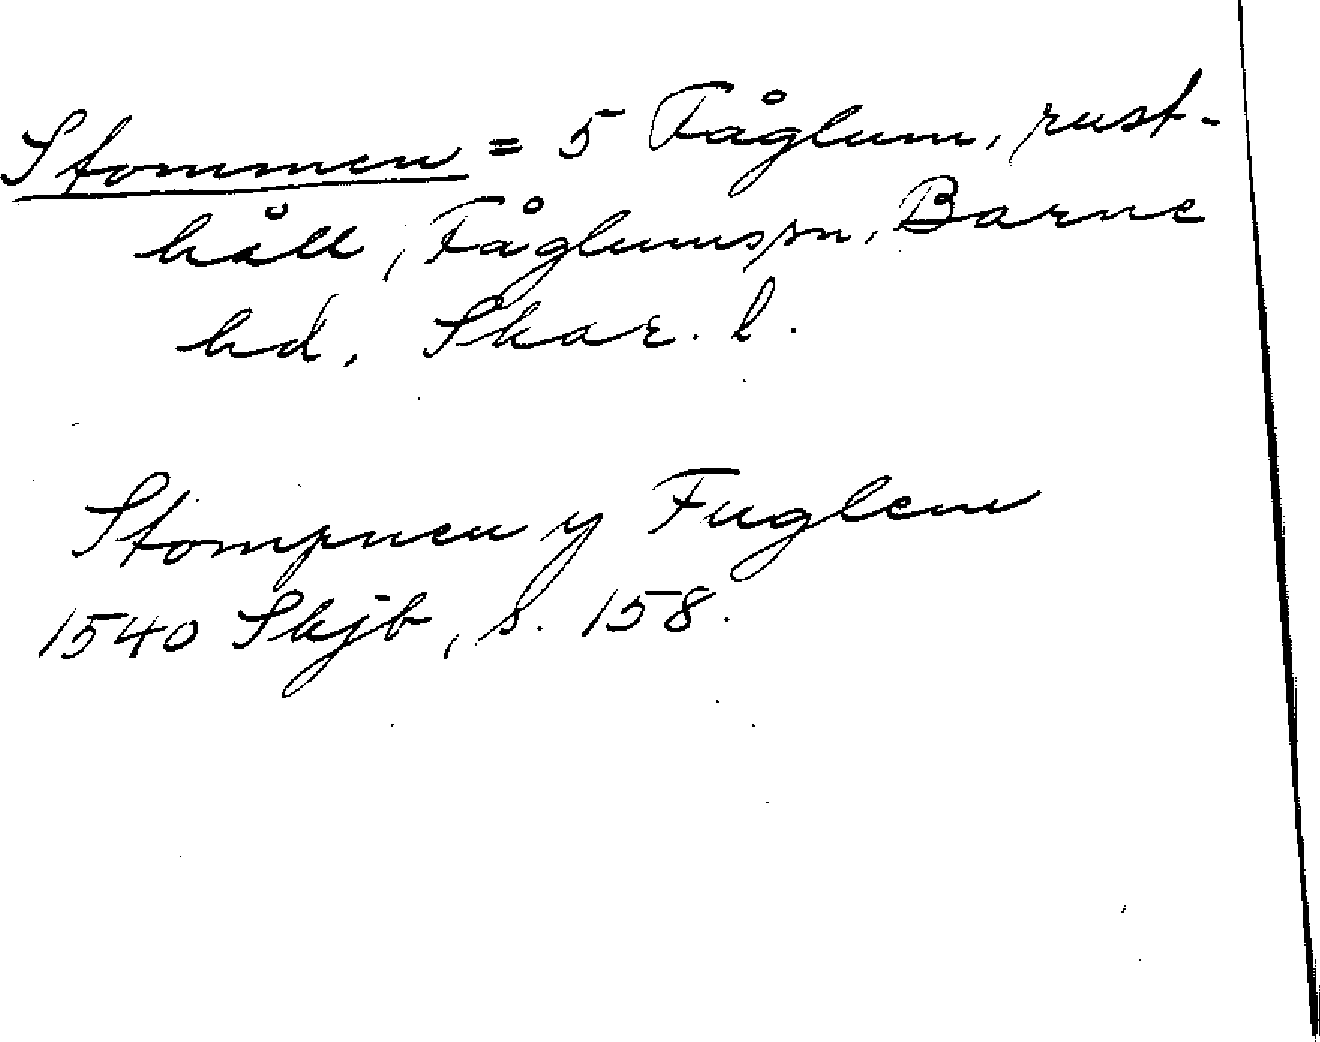 Stommen = 5 Fåglum, rust-
håll, Fåglums sn, Barne
hd, Skar. l.
Stompnen y Fuglem
1540 Skjb, s. 158.